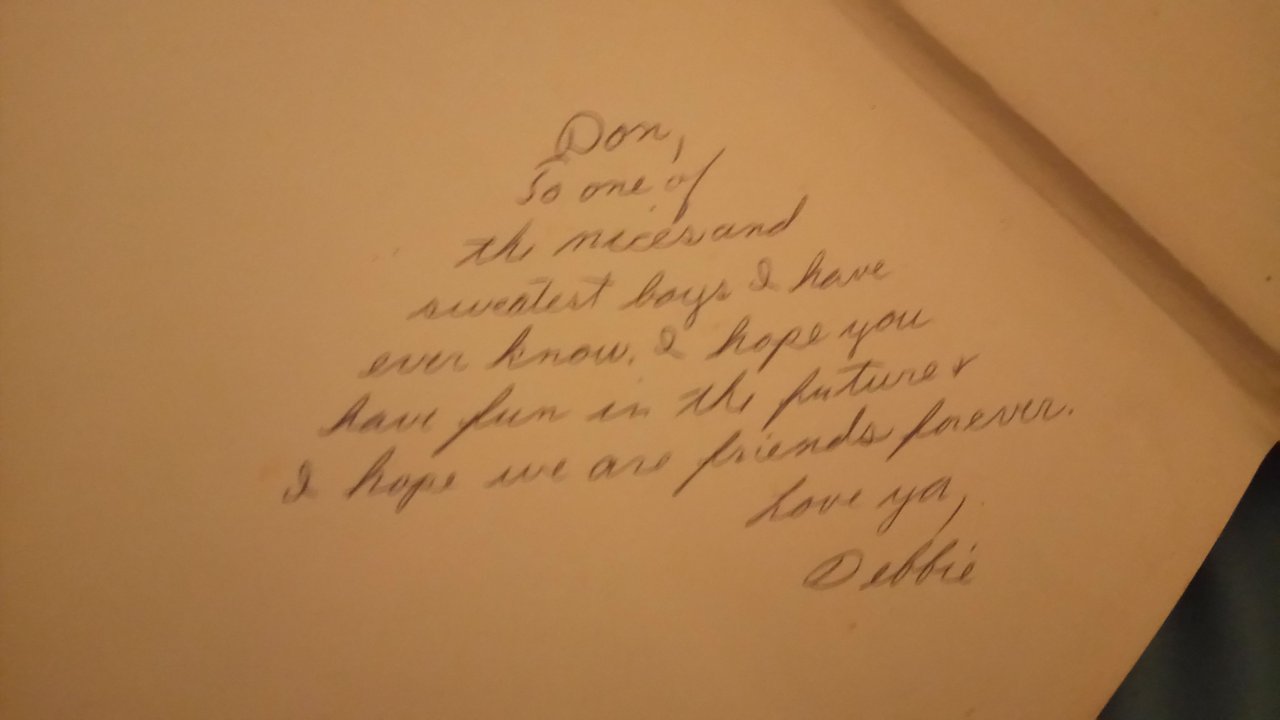 Don,
To one of
the nices and
sweatest boys I have
ever know. I hope you
have fun in the future &
I hope we are friends forever.
Love ya,
Debbie